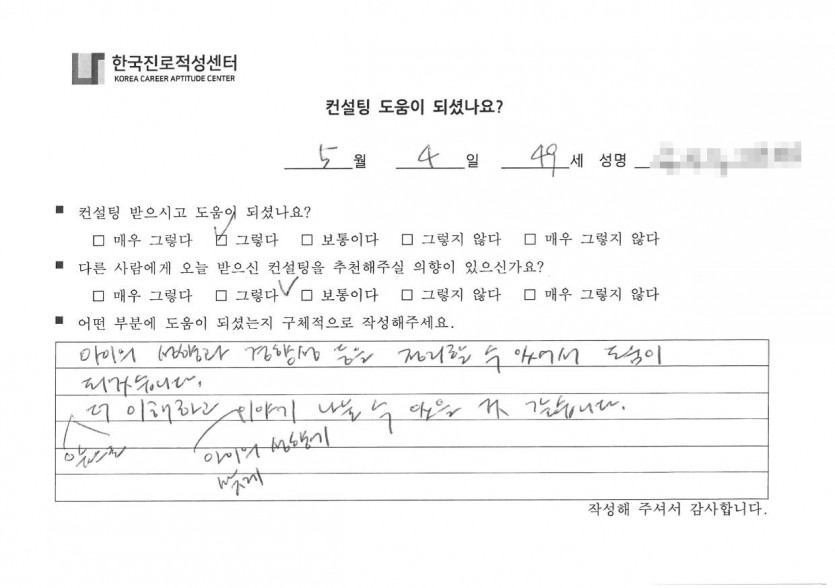 한국진로적성센터
KOREA CAREER APTITUDE CENTER
컨설팅 도움이 되셨나요?
5 월 4 일 49 세 성명
■ 컨설팅 받으시고 도움이 되셨나요?
□ 매우 그렇다 □ 그렇다 □ 보통이다 □ 그렇지 않다 □ 매우 그렇지 않다
■ 다른 사람에게 오늘 받으신 컨설팅을 추천해주실 의향이 있으신가요?
□ 매우 그렇다 □ 그렇다 □ 보통이다 □ 그렇지 않다 □ 매우 그렇지 않다
■ 어떤 부분에 도움이 되셨는지 구체적으로 작성해주세요.
아이의 성향과 경향성 등을 정리할 수 있어서 도움이
되었습니다.
더 이해하고 이야기 나눌 수 있을 것 같습니다.
앞으로 아이의 성향에
맞게
작성해 주셔서 감사합니다.